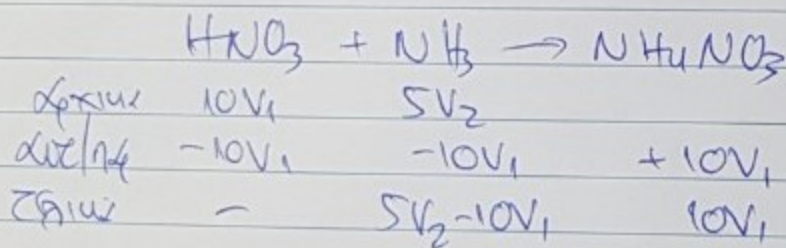 HNO3 + NH3 → NH4NO3
αρχικα 10V1 5V2
αντ/πψ -10V1 -10V1 +10V1
τελικα - 5V2-10V1 10V1